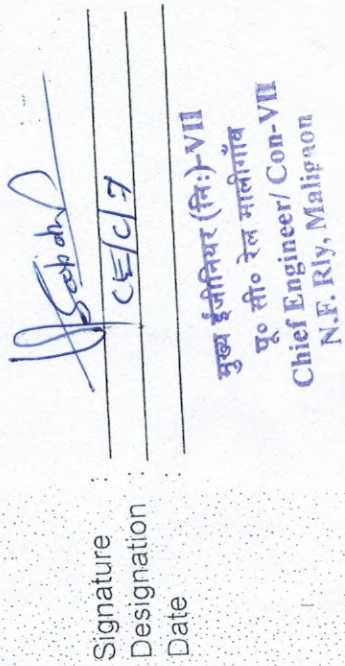 Signature :
Designation : CE/C/7
Date :
मुख्य इंजीनियर (नि:)-VII
पू० सी० रेल मालीगाँव
Chief Engineer/ Con-VII
N.F. Rly, Maligaon